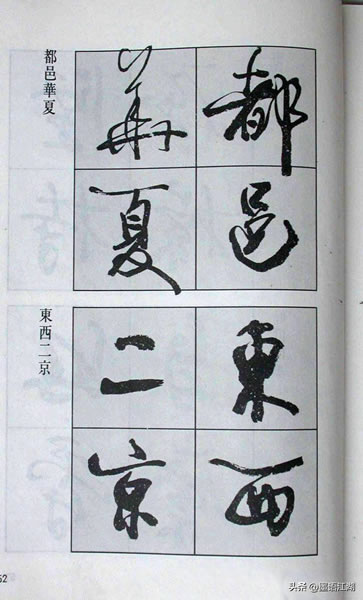 都邑
華夏
都邑華夏
東西
二京
東西二京
52
头条 @墨语江湖